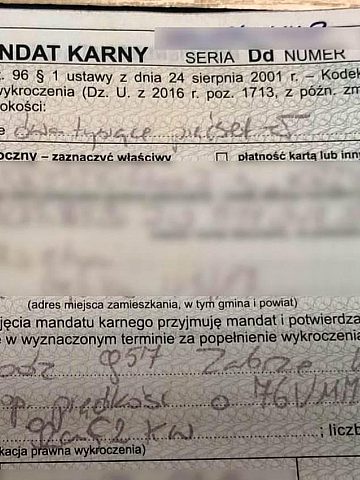 NDAT KARNY SERIA Dd NUMER
. 96 § 1 ustawy z dnia 24 sierpnia 2001 r. – Kodek
wykroczenia (Dz. U. z 2016 r. poz. 1713, z późn. zm
okości:
e dwa tysiące pięćset
oczny – zaznaczyć właściwy płatność kartą lub inny
(adres miejsca zamieszkania, w tym gmina i powiat)
jęcia mandatu karnego przyjmuję mandat i potwierdza
e w wyznaczonym terminie za popełnienie wykroczenia
Zabrze
prędkości o 76
92a §2 KW ; liczb
kacja prawna wykroczenia)